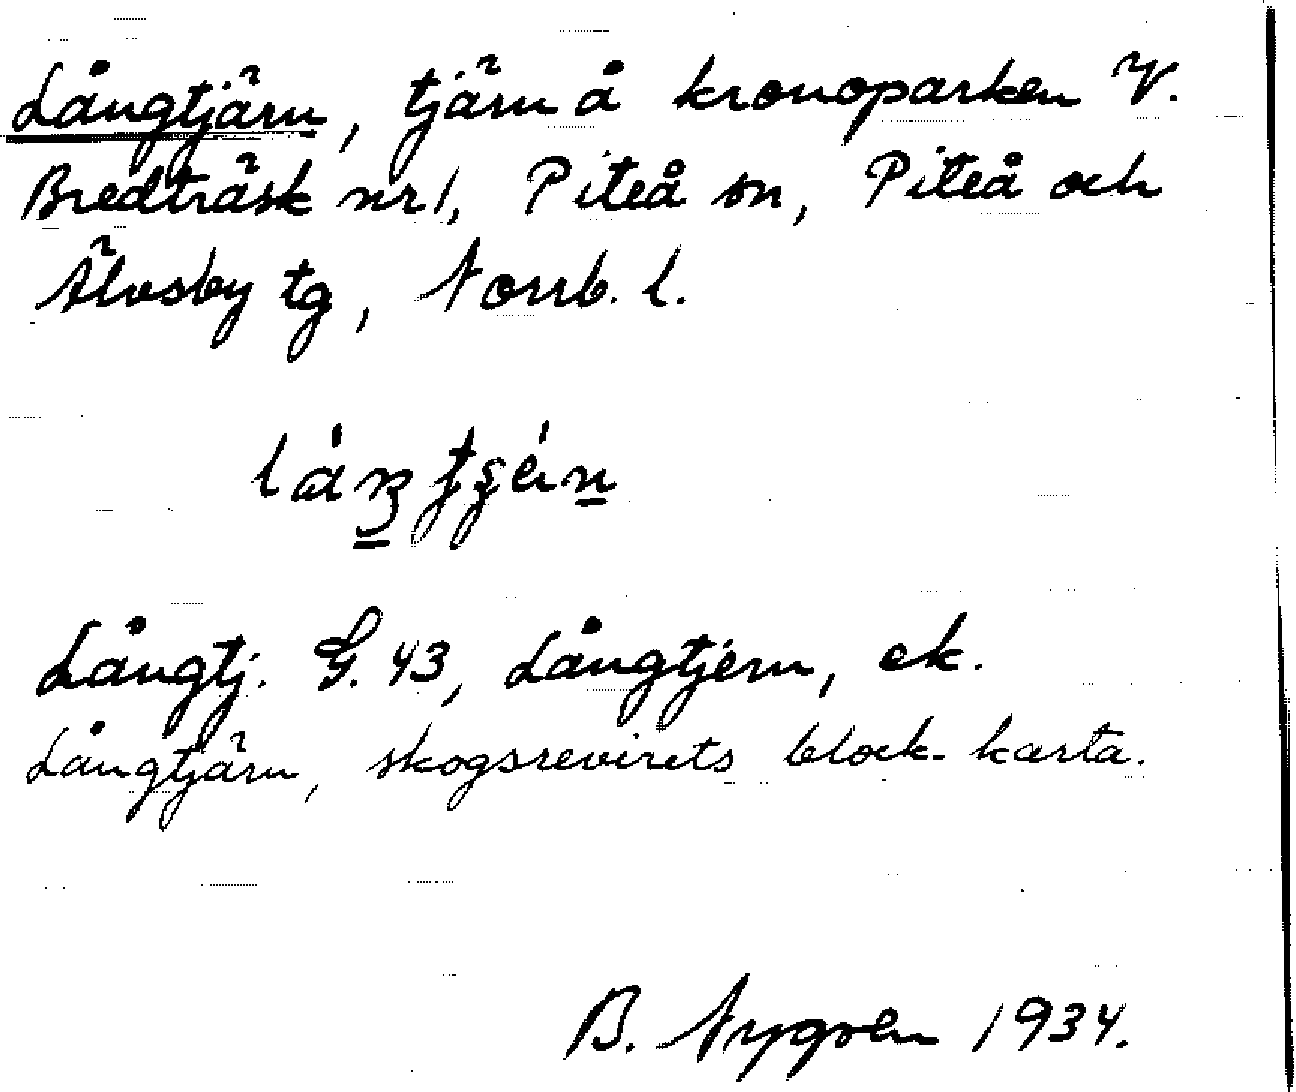 Långtjärn, tjärn å kronoparken V.
Bredträsk nr 1, Piteå sn, Piteå och
Älvsby tg, Norrb. l.
Långtj. G. 43, Långtjern, ek.
Långtjärn, skogsrevirets block-karta.
B. Nygren 1934.